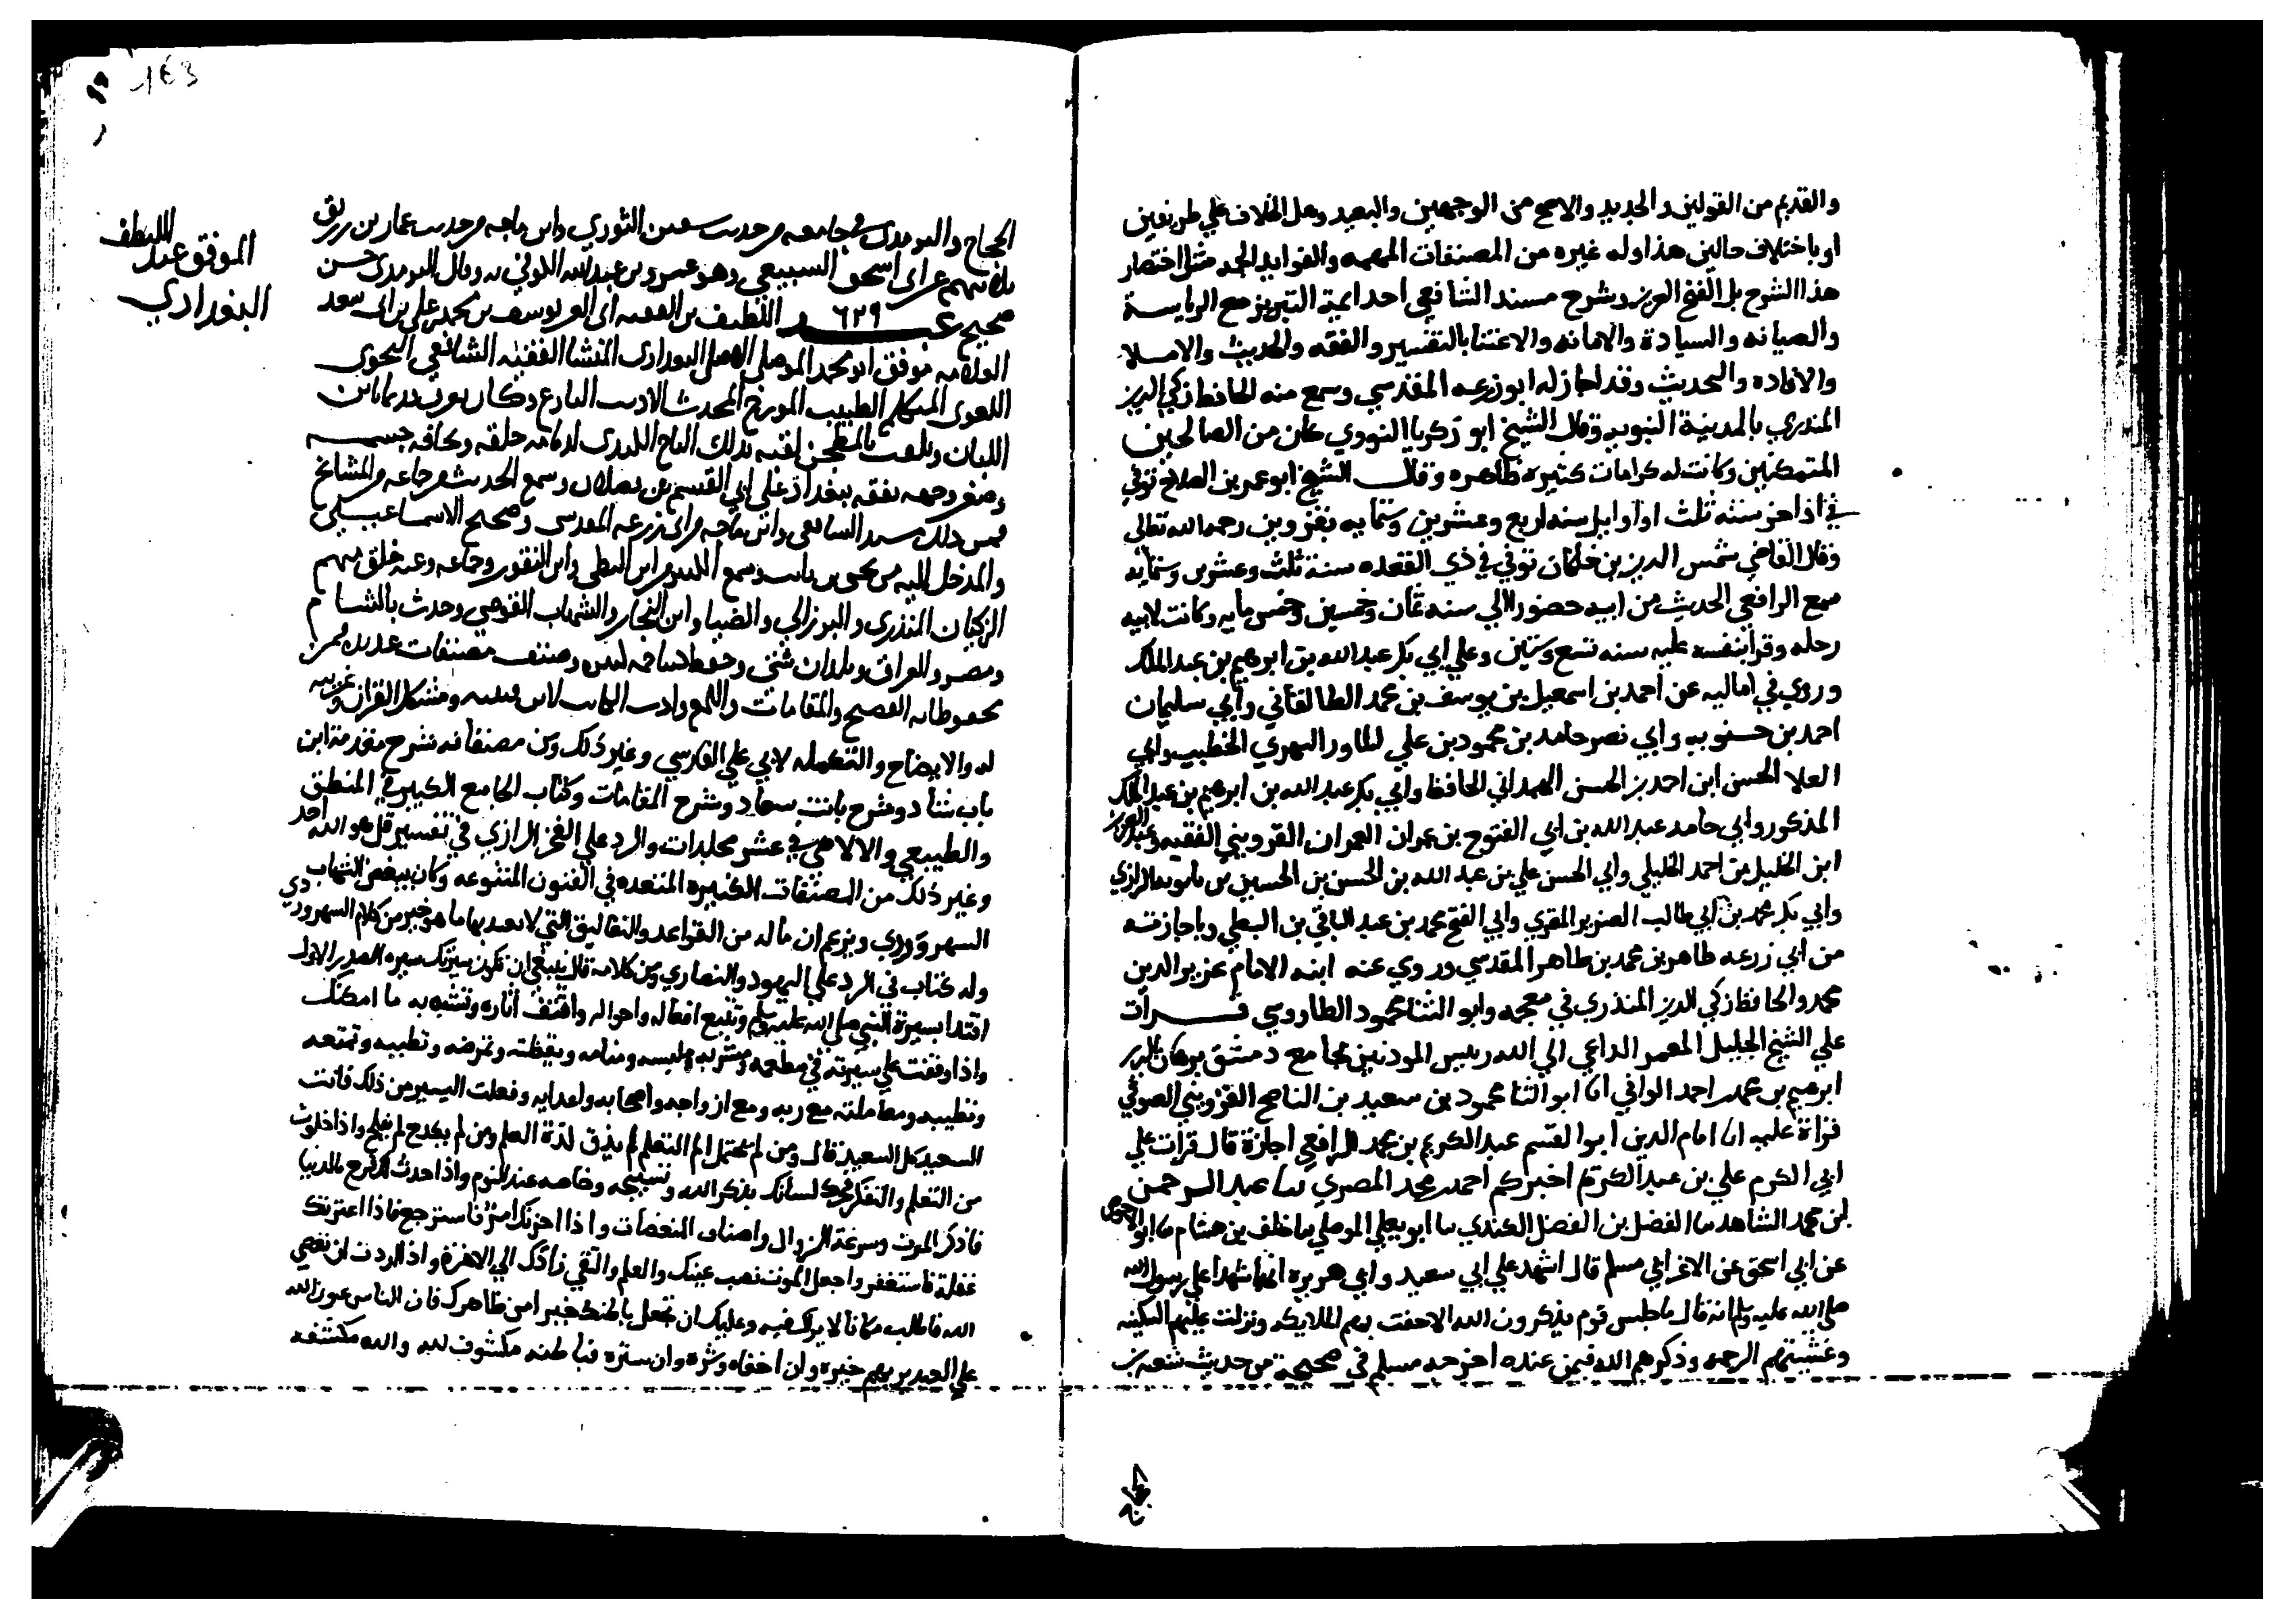 والقديم من القولين والجديد والاصح من الوجهين والبعيد وهل الخلاف علي طريقين
او باختلاف حالين هذا وله غيره من المصنفات المهمه والفوايد الجمه مثل اختصار
هذا الشرح بل الفتح العزيز وشرح مسند الشافعي احد ايمة التبريز مع الرياسة
والصيانه والسيادة والامانه والاعتنا بالتفسير والفقه والحديث والاملا
والافاده والتحديث وقد اجاز له ابو زرعه المقدسي وسمع منه الحافظ زكي الدين
المنذري بالمدينة النبويه وقال الشيخ ابو زكريا النووي كان من الصالحين
المتمكنين وكانت له كرامات كثيره ظاهره وقال الشيخ ابو عمر بن الصلاح توفي
في اواخر سنة ثلث او اوايل سنه اربع وعشرين وستمايه بقزوين رحمه الله تعالى
وقال القاضي شمس الدين بن خلكان توفي في ذي القعده سنة ثلث وعشرين وستمايه
سمع الرافعي الحديث من ابيه حضورا الي سنه ثمان وخمسين وخمس مايه وكانت لابيه
رحله وقرا بنفسه عليه سنه تسع وستين وعلي ابي بكر عبد الله بن ابرهيم بن عبد الملك
وروي في اماليه عن احمد بن اسمعيل بن يوسف بن محمد الطالقاني وابي سليمان
احمد بن حسنويه وابي نصر حامد بن محمود بن علي الماور النهري الخطيب وابي
العلا الحسن ابن احمد بن الحسن الهمداني الحافظ وابي بكر عبد الله بن ابرهيم بن عبد الملك
المذكور وابي حامد عبد الله بن ابي الفتوح بن عمران العمران القزويني الفقيه وعبد العزيز
ابن الخليل بن احمد الخليلي وابي الحسن علي بن عبد الله بن الحسن بن الحسين بن بابويه الرازي
وابي بكر محمد بن ابي طالب الضرير المقري وابي الفتح محمد بن عبد الباقي بن البطي وباجازته
من ابي زرعه طاهر بن محمد بن طاهر المقدسي وروي عنه ابنه الامام عزيز الدين
محمد والحافظ زكي الدين المنذري في معجمه وابو الثنا محمود الطاووسي قرات
علي الشيخ الجليل المعمر الداعي الي الله رييس الموذنين بجامع دمشق برهان الدين
ابرهيم بن محمد بن احمد الواني انا ابو الثنا محمود بن سعيد بن الناصح القزويني الصوفي
قراة عليه انا امام الدين ابو القسم عبد الكريم بن محمد الرافعي اجازة قال قرات علي
ابي الكرم علي بن عبد الكريم اخبركم احمد بن محمد المصري ثنا عبد الرحمن
ابن محمد الشاهد ثنا الفضل بن الفضل الكندي ثنا ابو يعلي الموصلي ثنا خلف بن هشام ثنا ابو الاحوص
عن ابي اسحق عن الاغر ابي مسلم قال اشهد علي ابي سعيد وابي هريره انهما شهدا علي رسول الله
صلي الله عليه وسلم انه قال ما جلس قوم يذكرون الله الا حفت بهم الملايكه ونزلت عليهم السكينه
وغشيتهم الرحمه وذكرهم الله فيمن عنده اخرجه مسلم في صحيحه من حديث شعبه بن
الحجاج والترمذي في جامعه من حديث سفين الثوري وابن ماجه من حديث عمار بن رزيق
ثلاثتهم عن ابي اسحق السبيعي وهو عمرو بن عبد الله الكوفي به وقال الترمذي حسن
صحيح عبد ٦٢٩ اللطيف بن الفقيه ابي العز يوسف بن محمد بن علي بن ابي سعد
العلامه موفق ابو محمد الموصلي الاصل البغدادي المنشا الفقيه الشافعي النحوي
اللغوي المتكلم الطبيب المورخ المحدث الاديب البارع وكان يعرف قديما بابن
اللبان ويلقب بالمطجن لقبه بذلك التاج الكندي لدمامه خلقه ونحافه جسمه
وصغر وجهه تفقه ببغداد علي ابي القسم بن فضلان وسمع الحديث من جماعه من المشايخ
فمن ذلك مسند الشافعي وابن ماجه من ابي زرعه المقدسي وصحيح الاسماعيلي
والمدخل اليه من يحيى بن ثابت وسمع الكثير من ابن البطي وابن النقور وجماعه وعنه خلق منهم
الزكيان المنذري والبرزالي والضيا وابن النجار والشهاب القوصي وحدث بالشام
ومصر والعراق وبلدان شتى وحفظ كتبا كثيره وصنف مصنفات عديده فمن
محفوظاته الفصيح والمقامات واللمع وادب الكاتب لابن قتيبه ومشكل القران وغريبه
له والايضاح والتكمله لابي علي الفارسي وغير ذلك ومن مصنفاته شرح مقدمة ابن
باب شاد وشرح بانت سعاد وشرح المقامات وكتاب الجامع الكبير في المنطق
والطبيعي والالاهي في عشر مجلدات والرد علي الفخر الرازي في تفسير قل هو الله احد
وغير ذلك من المصنفات الكثيره المتعدده في الفنون المتنوعه وكان يبغض الشهاب
السهروردي ويزعم ان ماله من القواعد والتعاليق التي لا يعتد بها ما هو خير من كلام السهروردي
وله كتاب في الرد علي اليهود والنصاري ومن كلامه قال ينبغي ان تكون سيرتك سيره الصدر الاول
اقتدا بسيرة النبي صلي الله عليه وسلم وتتبع افعاله واحواله واقتف اثاره وتشبه به ما امكنك
واذا وقفت علي سيرته في مطعمه ومشربه وملبسه ومنامه ويقظته وتمرضه وتطببه وتمتعه
وتطيبه ومعاملته مع ربه ومع ازواجه واصحابه واعدايه وفعلت اليسير من ذلك فانت
السعيد كل السعيد قال ومن لم يحتمل الم التعلم لم يذق لذة العلم ومن لم يكدح لم يفلح واذا خلوت
من التعلم والتفكر فحرك لسانك بذكر الله وتسبيحه وخاصه عند النوم واذا حدث لك فرح بالدنيا
فاذكر الموت وسرعة الزوال واصناف المنغصات واذا احزنك امر فاسترجع فاذا اعترتك
غفلة فاستغفر واجعل الموت نصب عينك والعلم والتقي زادك الي الاخرة واذا اردت ان تعصي
الله فاطلب مكانا لا يراك فيه وعليك ان تجعل باطنك خيرا من ظاهرك فان الناس عيون الله
علي العبد يريهم خيره وان اخفاه وشره وان ستره فباطنه مكشوف لله والله مكشفه
الموفق عبد اللطيف
البغدادي
١٤٣